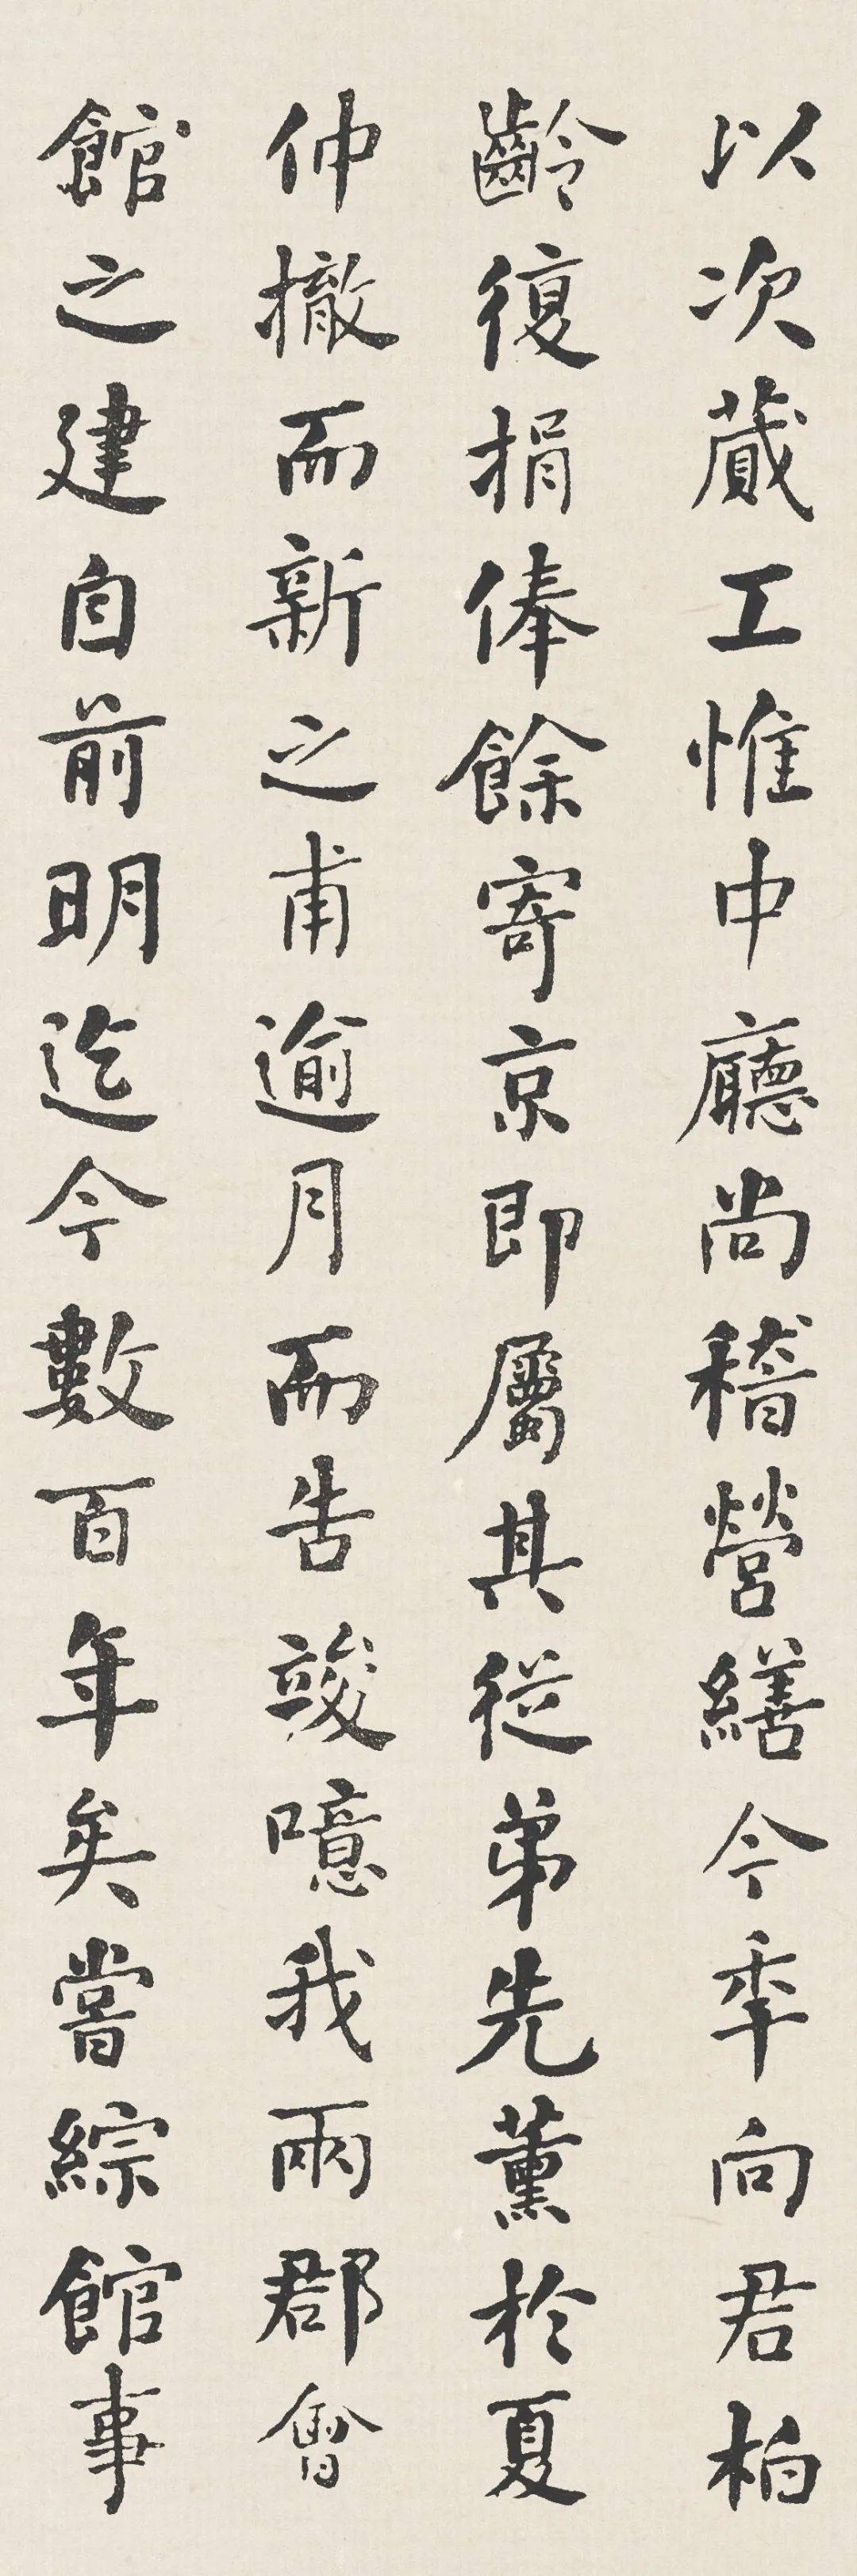 以次蕆工惟中廳尚稽營繕今季向君柏
齡復捐俸餘寄京即屬其從弟先薰於夏
仲撤而新之甫逾月而告竣噫我兩郡會
館之建自前明迄今數百年矣嘗綜館事